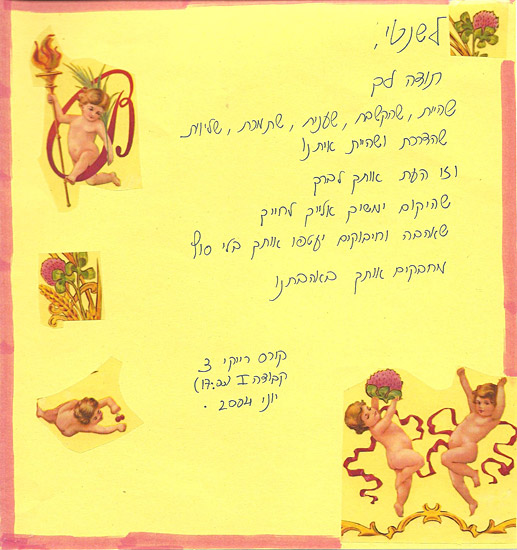 לשנטי,
תודה לך
שהיית, שהקשבת, שענית, שתמכת, שליוית
שהדרכת ושהיית איתנו
וזו העת אותך לברך
שהיקום ימשיך אלייך לחייך
שאהבה וחיבוקים יעטפו אותך בלי סוף
מחבקים אותך באהבתנו
קורס רייקי 3
קבוצה II (17:00)
יוני 2004.